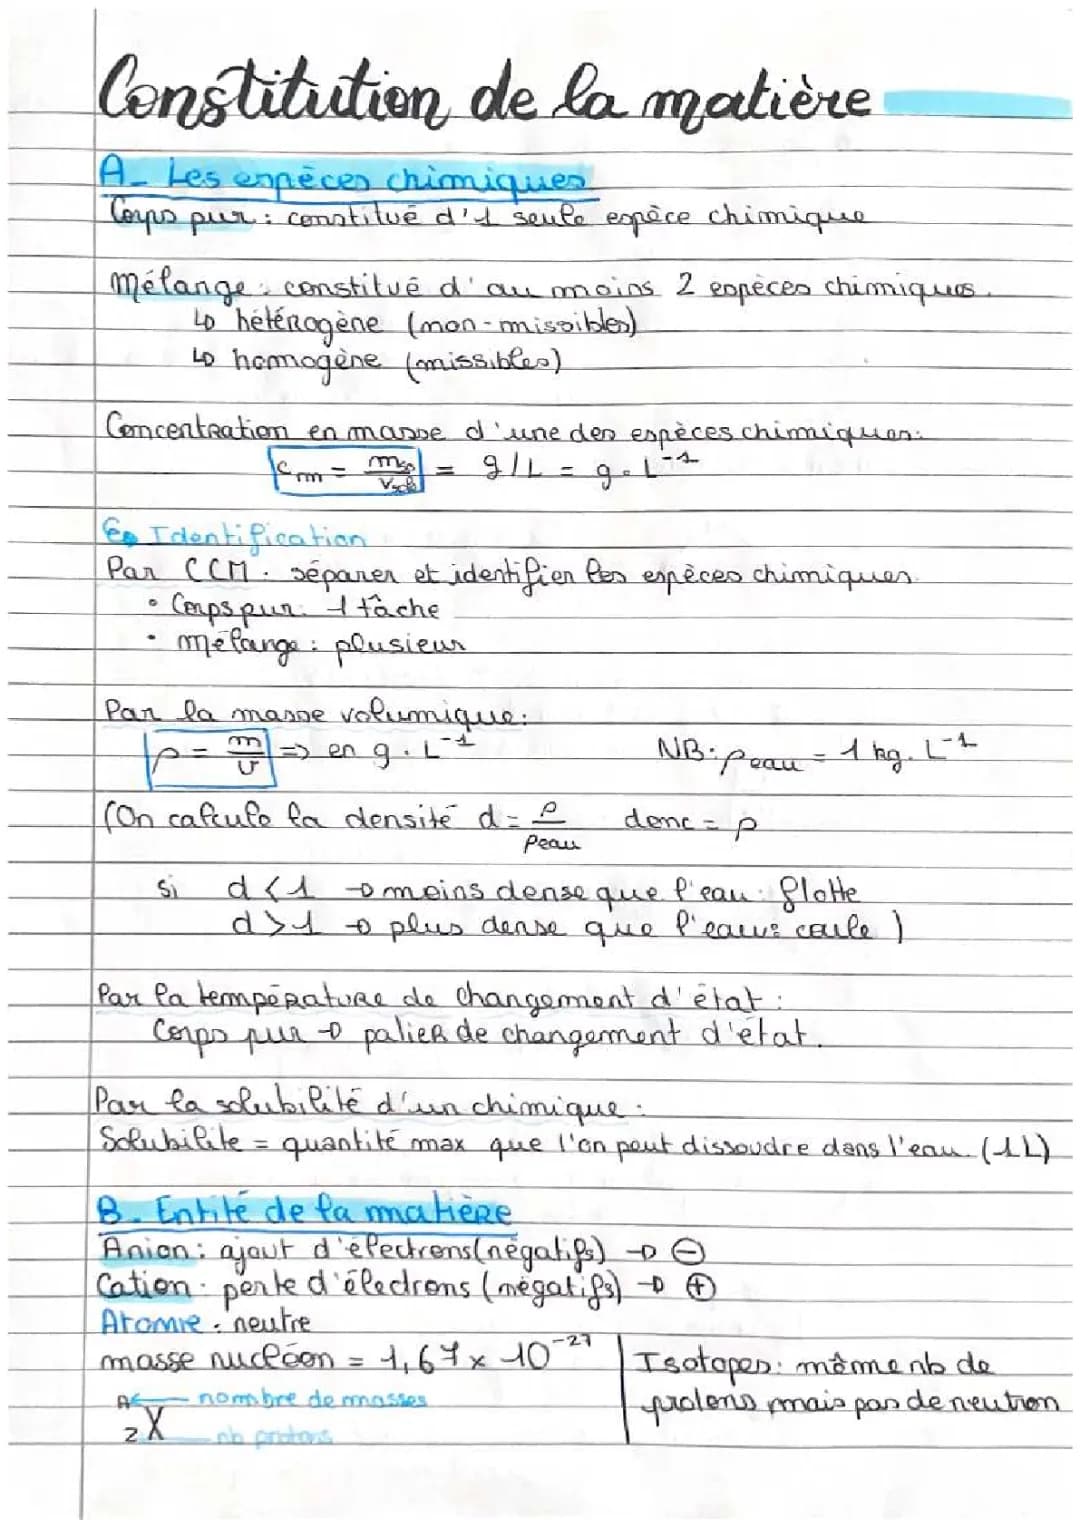 Constitution de la matière
A_ Les espèces chimiques
Corps pur : constitué d'1 seule espèce chimique
Mélange : constitué d'au moins 2 espèces chimiques.
↳ hétérogène (non-missibles)
↳ homogène (missibles)
Concentration en masse d'une des espèces chimiques:
Cm = msp/Vsol = g/L = g.L⁻¹
Identification
Par CCM : séparer et identifier les espèces chimiques
• Corps pur : 1 tâche
• Mélange : plusieur
Par la masse volumique:
ρ = m/V => en g.L⁻¹ NB: ρeau = 1 kg.L⁻¹
(On calcule la densité d = ρ/ρeau donc = ρ
si d < 1 → moins dense que l'eau : flotte
d > 1 → plus dense que l'eau : coule )
Par la température de changement d'état :
Corps pur → palier de changement d'état.
Par la solubilité d'un chimique :
Solubilite = quantité max que l'on peut dissoudre dans l'eau. (1L)
B. Entité de la matière
Anion : ajout d'électrons (négatifs) → ⊖
Cation : perte d'électrons (négatifs) → ⊕
Atome : neutre
masse nucléon = 1,67 x 10⁻²⁷
A ← nombre de masses
Z X nb protons
Isotopes : même nb de
protons mais pas de neutron